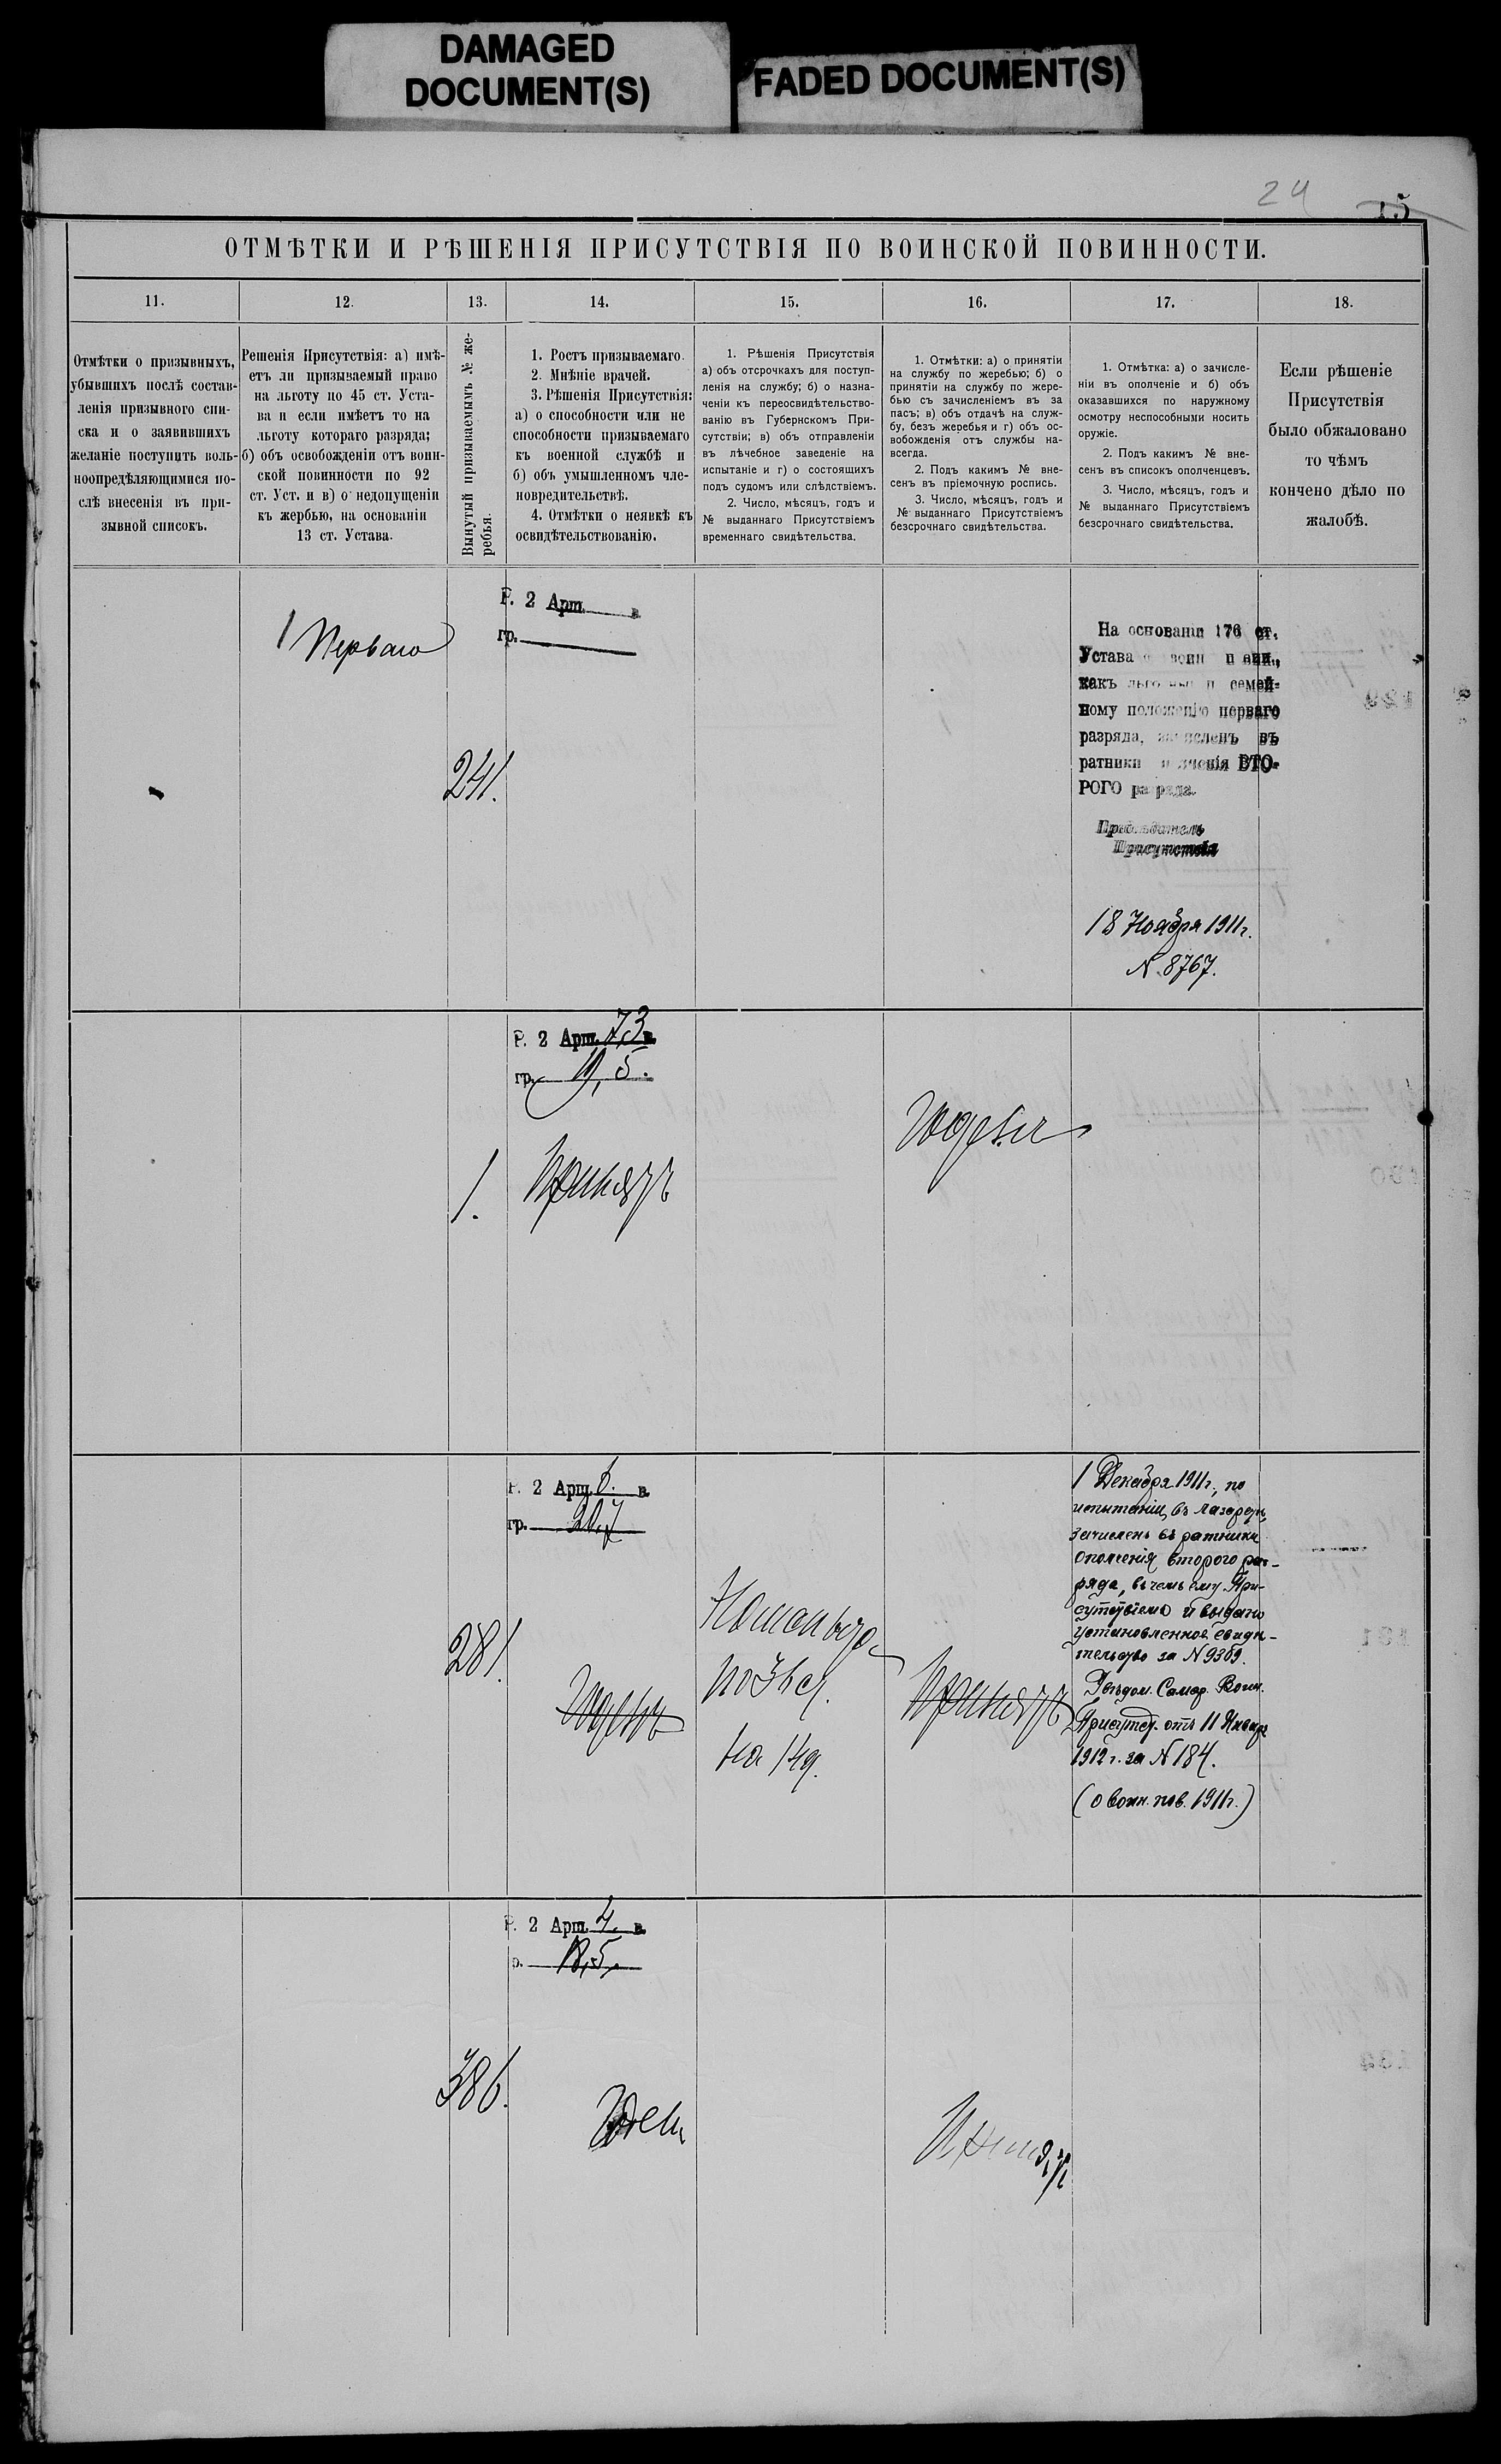 DAMAGED
DOCUMENT(S)
FADED DOCUMENT(S)
24
15
ОТМѢТКИ И РѢШЕНІЯ ПРИСУТСТВІЯ ПО ВОИНСКОЙ ПОВИННОСТИ.
11.
12.
13.
14.
15.
16.
17.
18.
Отмѣтки о призывныхъ,
убывшихъ послѣ состав-
ленія призывного спи-
ска и о заявившихъ
желаніе поступить воль-
ноопредѣляющимися по-
слѣ внесенія въ при-
зывной списокъ.
Решенія Присутствія: а) имѣ-
етъ ли призываемый право
на льготу по 45 ст. Уста-
ва и если имѣетъ то на
льготу котораго разряда;
б) объ освобожденіи отъ воин-
ской повинности по 92
ст. Уст. и в) о недопущеніи
къ жербью, на основаніи
13 ст. Устава.
Вынутый призываемымъ № же-
ребья.
1. Ростъ призываемаго.
2. Мнѣніе врачей.
3. Рѣшенія Присутствія:
а) о способности или не
способности призываемаго
къ военной службѣ и
б) объ умышленномъ чле-
новредительствѣ.
4. Отмѣтки о неявкѣ къ
освидѣтельствованію.
1. Рѣшенія Присутствія
а) объ отсрочкахъ для поступ-
ленія на службу; б) о назна-
ченіи къ переосвидѣтельство-
ванію въ Губернскомъ При-
сутствіи; в) объ отправленіи
въ лѣчебное заведеніе на
испытаніе и г) о состоящихъ
подъ судомъ или слѣдствіемъ.
2. Число, мѣсяцъ, годъ и
№ выданнаго Присутствіемъ
временнаго свидѣтельства.
1. Отмѣтки: а) о принятіи
на службу по жеребью; б) о
принятіи на службу по жере-
бью съ зачисленіемъ въ за
пасъ; в) объ отдачѣ на служ-
бу, безъ жеребья и г) объ ос-
вобожденія отъ службы на-
всегда.
2. Подъ какимъ № вне-
сенъ въ пріемочную роспись.
3. Число, мѣсяцъ, годъ и
№ выданнаго Присутствіемъ
безсрочнаго свидѣтельства.
1. Отмѣтка: а) о зачисле-
ніи въ ополченіе и б) объ
оказавшихся по наружному
осмотру неспособными носить
оружіе.
2. Подъ какимъ № вне-
сенъ въ списокъ ополченцевъ.
3. Число, мѣсяцъ, годъ и
№ выданнаго Присутствіемъ
безсрочнаго свидѣтельства.
Если рѣшеніе
Присутствія
было обжаловано
то чѣмъ
кончено дѣло по
жалобѣ.
1 Перваго
241.
Р. 2 Арш. в.
гр.
На основаніи 176 ст.
Устава о воин пвин.,
какъ льготный п семей-
ному положенію перваго
разряда, зачисленъ въ
ратники ополченія ВТО-
РОГО разряда.
Предсѣдатель
Присутствія
18 Ноября 1911 г.
№ 8767.
1.
Р. 2 Арш. 7,3 в.
гр. 19,5.
Принятъ
Годенъ
281.
Р. 2 Арш. 6. в.
гр. 20,7
Годенъ
на 14д.
Принятъ
1 Декабря 1911 г., по
испытаніи, въ лазаретѣ,
зачисленъ въ ратники
ополченія второго раз-
ряда, въ чемъ ему При-
сутствіемъ и выдано
установленное свидѣ-
тельство за № 9369.
Самар. Воин.
Присутст. отъ 11 Января
1912 г. за № 184.
(о воин. пов. 1911 г.)
386.
Р. 2 Арш. 4. в.
р. 18,5,
Годенъ
Принятъ